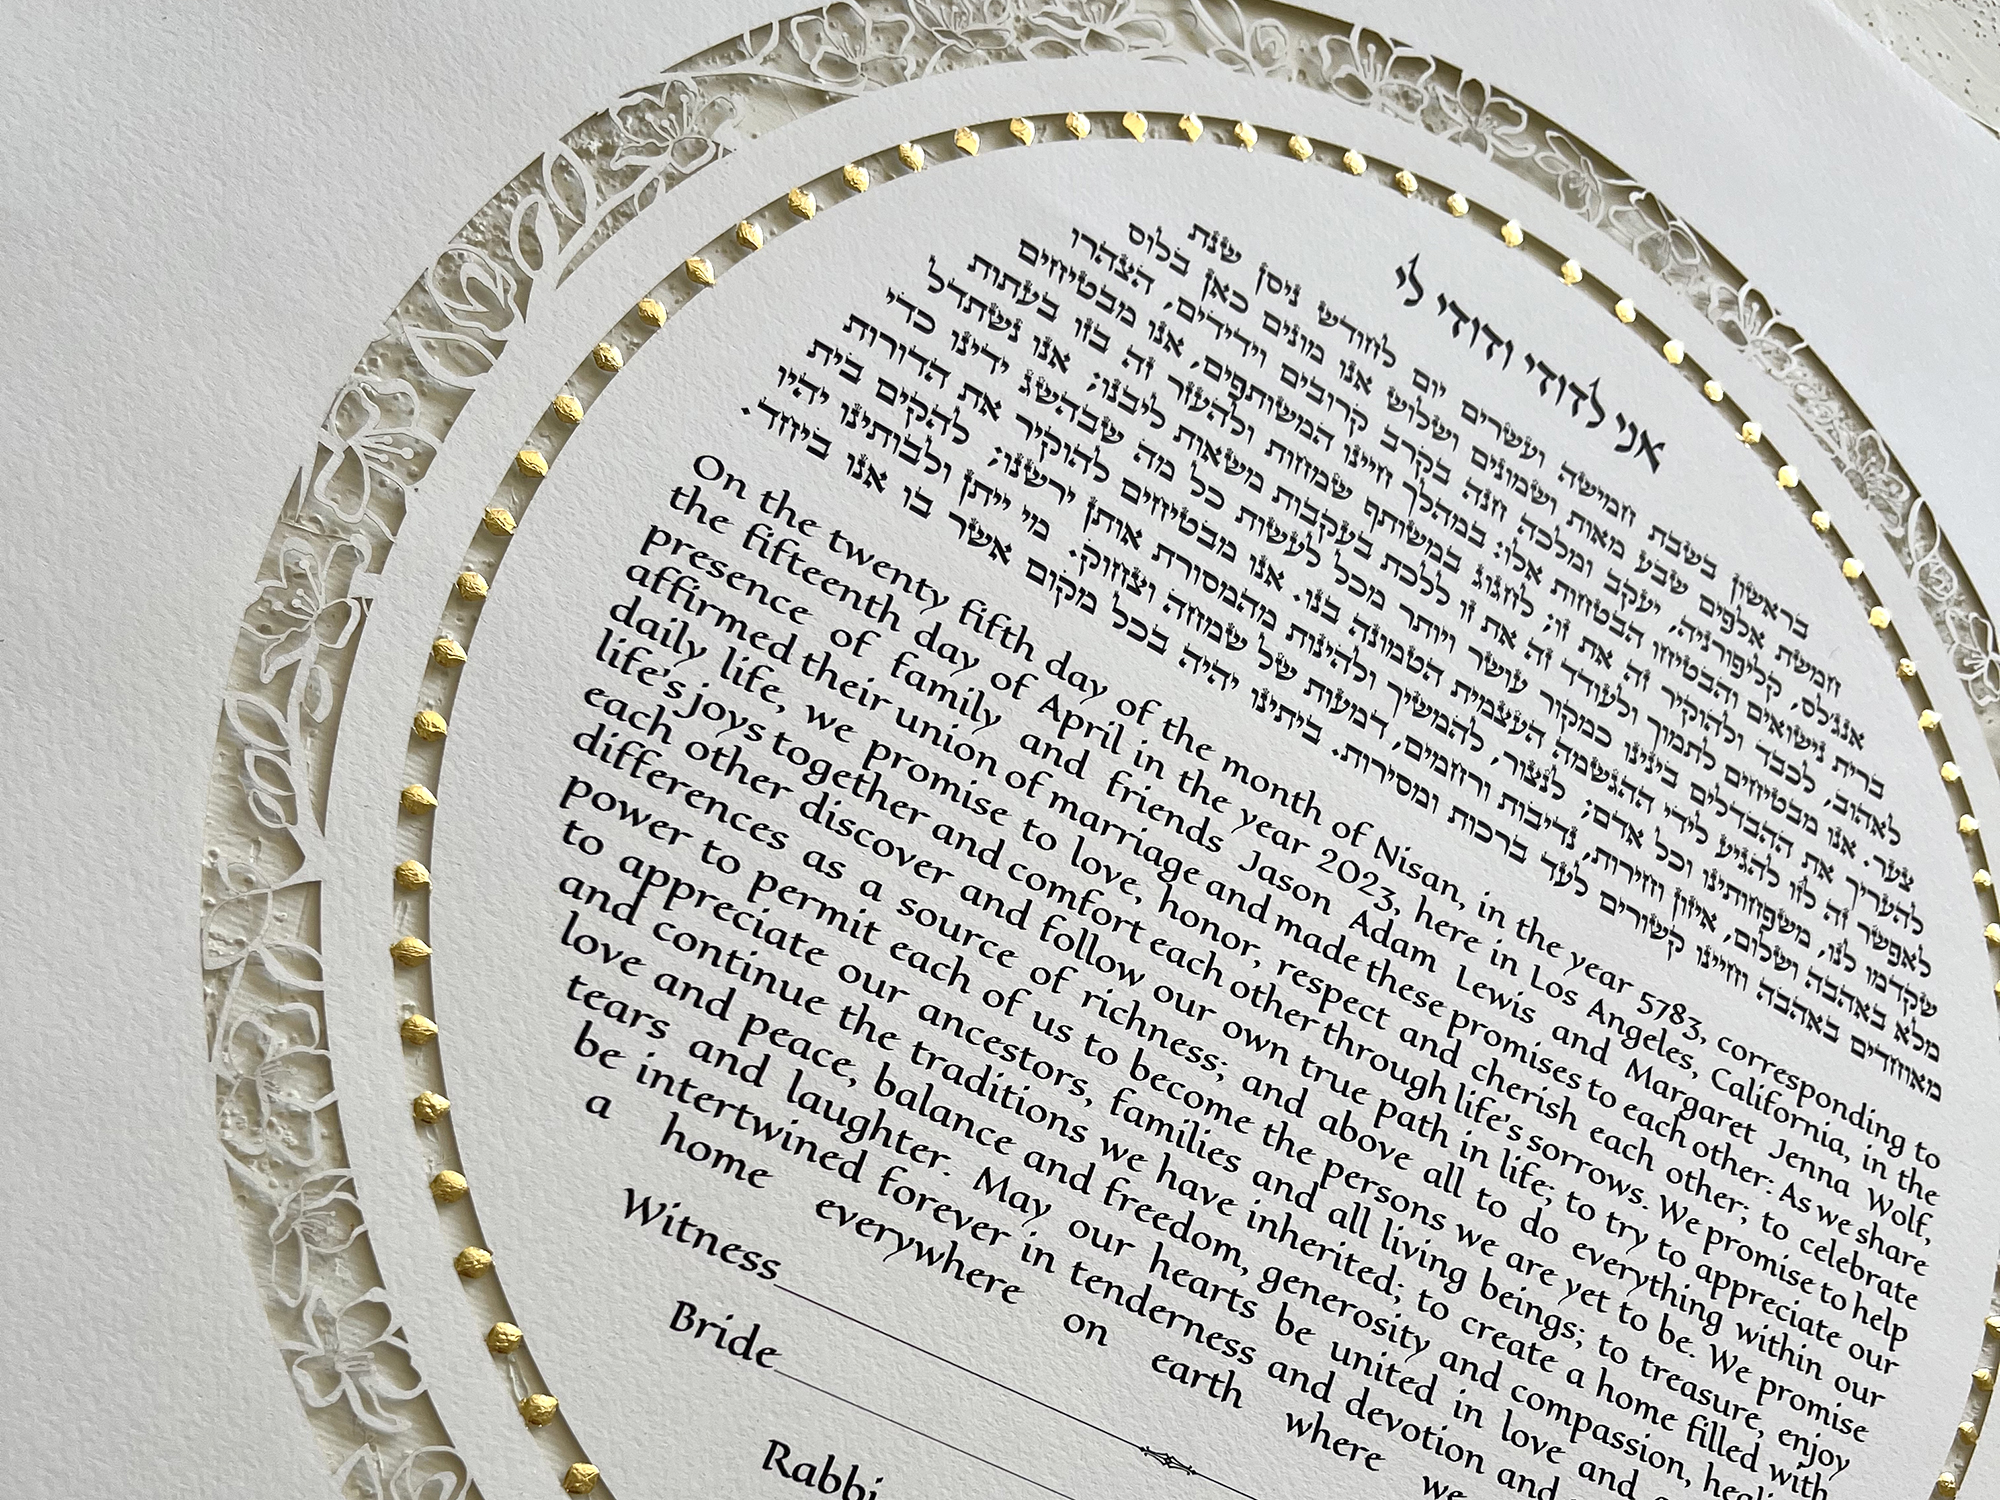 אני לדודי ודודי לי
בראשון בשבת חמישה ועשרים יום לחודש ניסן שנת
חמשת אלפים שבע מאות ושמונים ושלוש אנו מונים כאן בלוס
אנג'לס, קליפורניה, יעקב ומלכה חנה בקרב קרובים וידידים, הצהרו
ברית נישואים והבטיחו הבטחות אלו: במהלך חיינו המשותפים, אנו מבטיחים
לאהוב, לכבד ולהוקיר זה את זו; לחגוג במשותף שמחות ולהעזר זה בזו בעתות
צער. אנו מבטיחים לתמוך ולעודד זה את זו ללכת בעקבות משאות ליבנו; אנו נשתדל
להעריך את ההבדלים בינינו כמקור עושר ויותר מכל לעשות כל מה שבהשג ידינו כדי
לאפשר זה לזו להגיע לידי ההגשמה העצמית הטמונה בנו. אנו מבטיחים להוקיר את הדורות
שקדמו לנו, משפחותינו וכל אדם; לנצור, להמשיך ולהינות מהמסורת אותן ירשנו; להקים בית
מלא באהבה ושלום, איזון וחירות, נדיבות ורחמים, דמעות של שמחה וצחוק. מי ייתן ולבותינו יהיו
מאוחדים באהבה וחיינו קשורים לעד ברכות ומסירות. ביתינו יהיה בכל מקום אשר בו אנו ביחד.
On the twenty fifth day of the month of Nisan, in the year 5783, corresponding to
the fifteenth day of April in the year 2023, here in Los Angeles, California, in the
presence of family and friends Jason Adam Lewis and Margaret Jenna Wolf,
affirmed their union of marriage and made these promises to each other: As we share
daily life, we promise to love, honor, respect and cherish each other; to celebrate
life's joys together and comfort each other through life's sorrows. We promise to help
each other discover and follow our own true path in life; to try to appreciate our
differences as a source of richness; and above all to do everything within our
power to permit each of us to become the persons we are yet to be. We promise
to appreciate our ancestors, families and all living beings; to treasure, enjoy
and continue the traditions we have inherited; to create a home filled with
love and peace, balance and freedom, generosity and compassion,
tears and laughter. May our hearts be united in love and
be intertwined forever in tenderness and devotion and
a home everywhere on earth where we
Witness
Bride
Rabbi